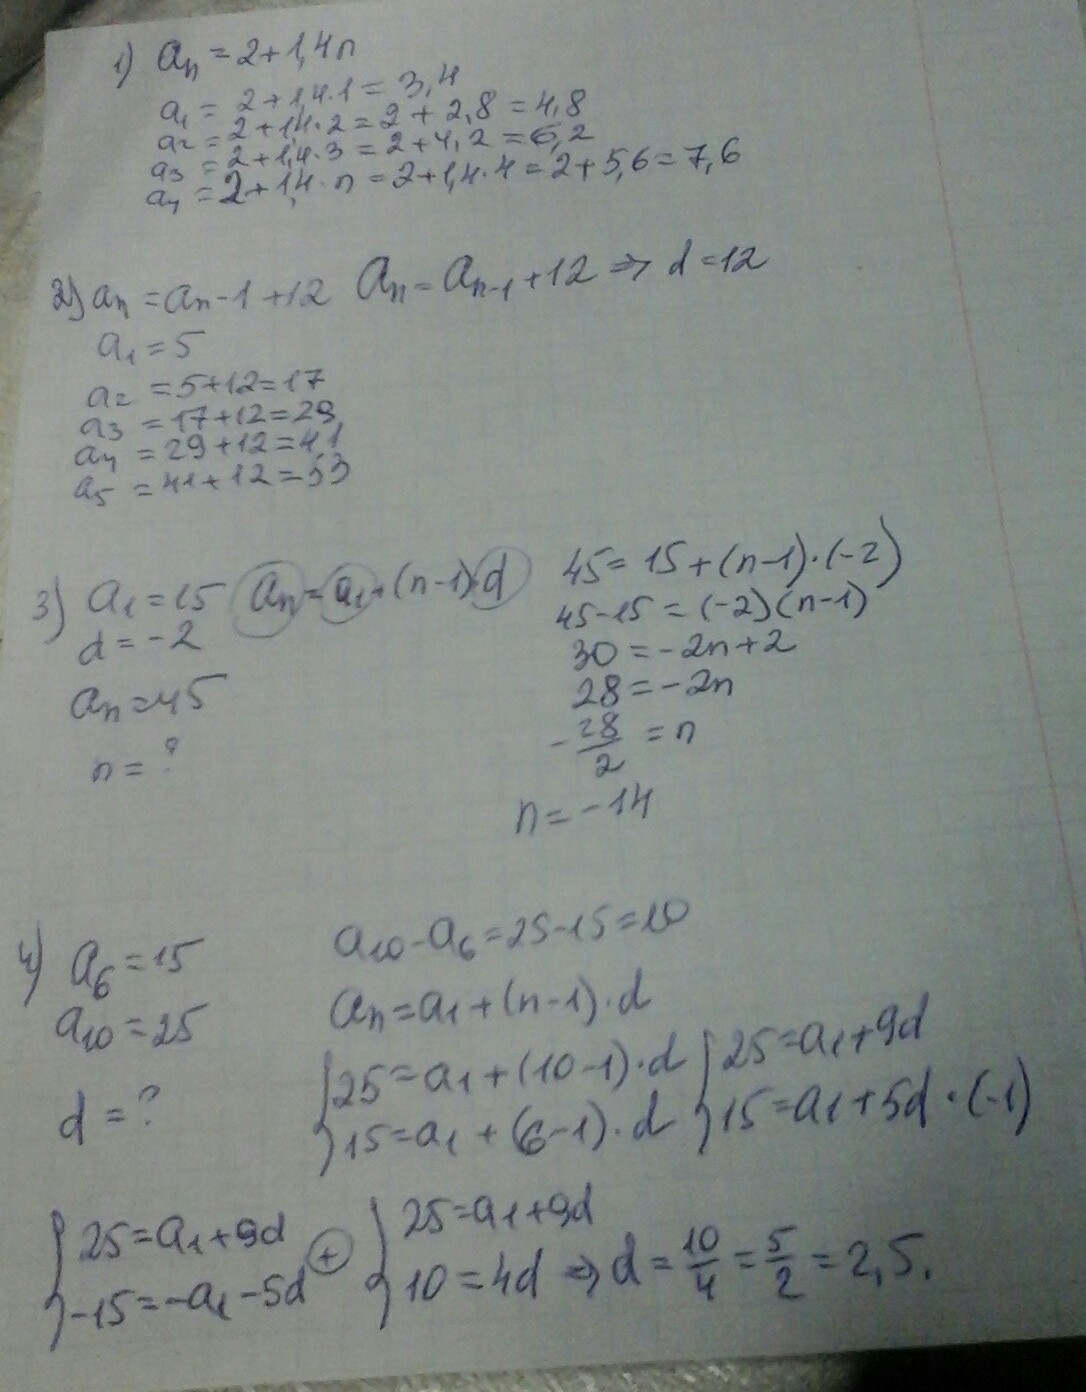 1) an = 2+1,4n
a1 = 2+1,4·1 = 3,4
a2 = 2+1,4·2 = 2 + 2,8 = 4,8
a3 = 2+1,4·3 = 2+4,2 = 6,2
a4 = 2+1,4·n = 2+1,4·4 = 2+5,6 = 7,6
2) an = an-1+12 an = an-1+12 => d=12
a1 = 5
a2 = 5+12=17
a3 = 17+12=29
a4 = 29+12=41
a5 = 41+12=53
3) a1 = 15 an = a1+(n-1)·d 45 = 15+(n-1)·(-2)
d = -2 45-15 = (-2)(n-1)
30 = -2n+2
an = 45 28 = -2n
n = ? -28/2 = n
n = -14
4) a6 = 15 a10-a6 = 25-15=10
a10 = 25 an = a1+(n-1)·d
d = ? { 25 = a1+(10-1)·d { 25 = a1+9d
15 = a1+(6-1)·d 15 = a1+5d ·(-1)
{ 25 = a1+9d (+) { 25 = a1+9d
-15 = -a1-5d 10 = 4d => d = 10/4 = 5/2 = 2,5.